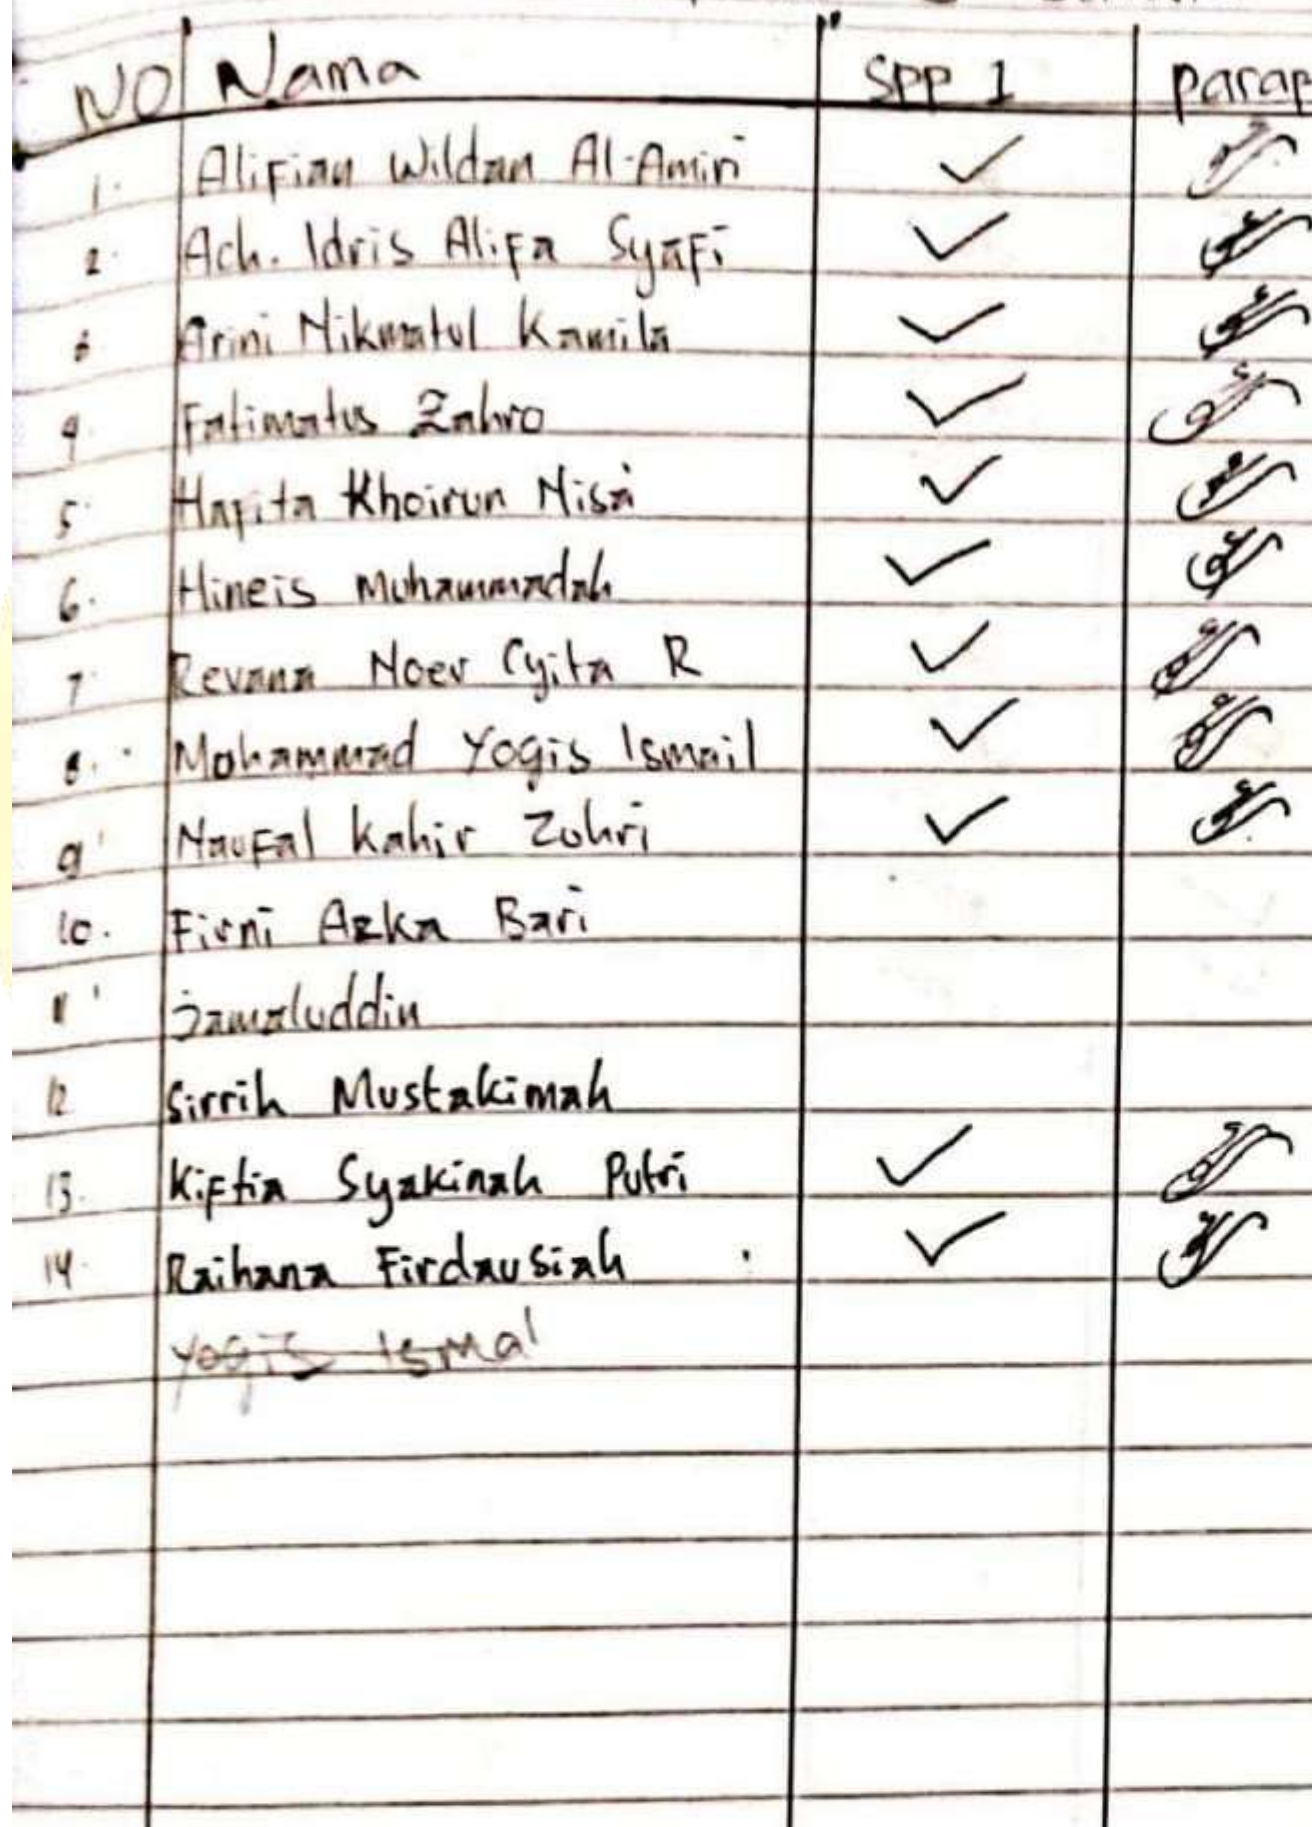 NO Nama SPP 1 Paraf
1. Alifian Wildan Al-Amiri ✓
2. Ach. Idris Alifa Syafi ✓
3 Arini Nikmatul Kamila ✓
4. Fatimatus Zahro ✓
5. Hafita Khoirun Nisa ✓
6. Hineis Muhammadah ✓
7. Revana Noer Cyita R ✓
8. Mohammad Yogis Ismail ✓
9 Naufal Kahir Zohri ✓
10. Firni Azka Bari
11 Jamaluddin
12 Sirrih Mustakimah
13. Kiftia Syakinah Putri ✓
14. Raihana Firdausiah ✓
Yogis Ismal